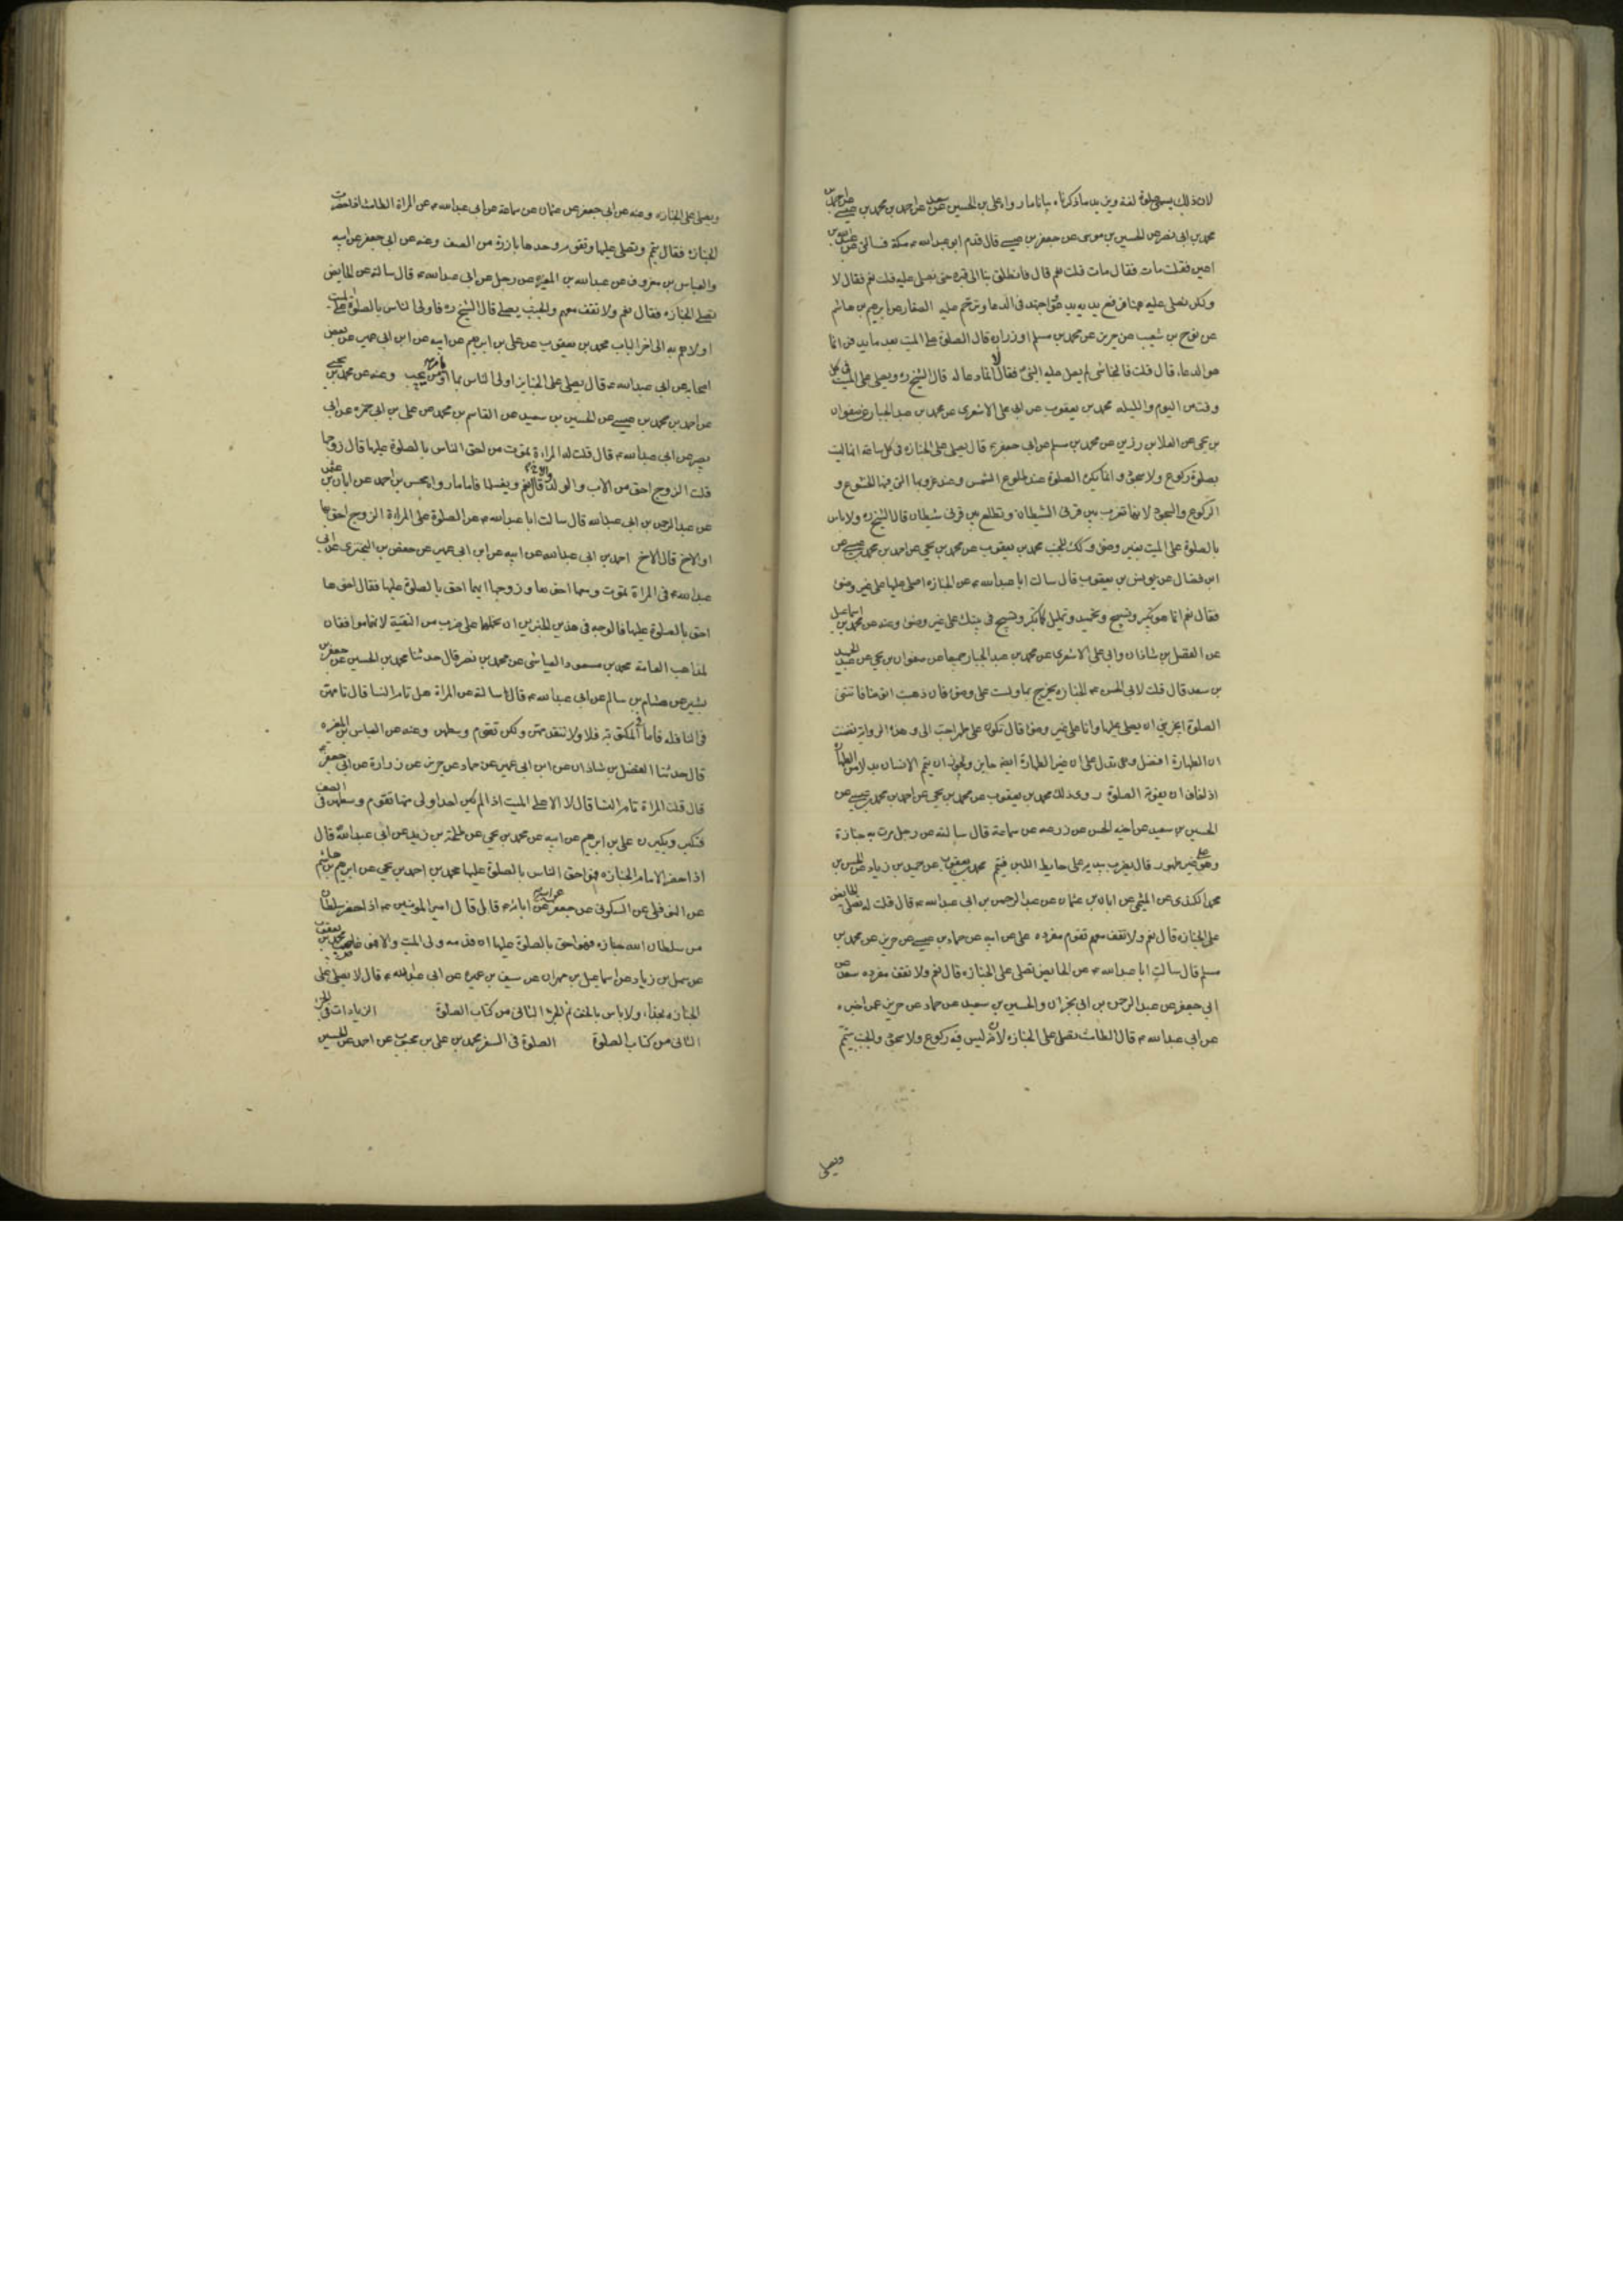 لان ذلك يسمى صلوة لغة ويزيد ماذكرناه بيانا ما رواه على بن الحسين عن سعد عن احمد بن محمد بن عيسى عن احمد بن
محمد بن ابى نصر عن الحسين بن موسى عن جعفر بن عيسى قال قدم ابو عبد الله ع مكة فسالنى عن عبد الله بن
اعين فقلت مات فقال مات قلت نعم قال فانطلق بنا الى قبره حتى نصلى عليه قلت نعم فقال لا
ولكن نصلى عليه هنا فرفع يديه يدعو واجتهد فى الدعا وترحم عليه الصفار عن ابرهيم بن هاشم
عن نوح بن شعيب عن حريز عن محمد بن مسلم او زرارة قال الصلوة على الميت بعد ما يدفن انما
هو الدعا، قال قلت فالنجاشى لم يصل عليه النبى فقال لا انما دعا له قال الشيخ ره ويصلى على الميت فى كل
وقت من اليوم والليله محمد بن يعقوب عن ابى على الاشعرى عن محمد بن عبد الجبار عن صفوان
بن يحيى عن العلا بن رزين عن محمد بن مسلم عن ابى جعفر ع قال يصلى على الجنازه فى كل ساعة انها ليست
بصلوة ركوع ولا سجود وانما يكره الصلوة عند طلوع الشمس وعند غروبها التى فيها الخشوع و
الركوع والسجود لانها تغرب بين قرنى الشيطان وتطلع بين قرنى شيطان قال الشيخ ره ولا باس
بالصلوة على الميت بغير وضوء وكذلك للجنب محمد بن يعقوب عن محمد بن يحيى عن احمد بن محمد بن عيسى عن
ابن فضال عن يونس بن يعقوب قال سالت ابا عبد الله ع عن الجنازه اصلى عليها على غير وضوء
فقال نعم انما هو تكبير وتسبيح وتحميد وتهليل كما تكبر وتسبح فى بيتك على غير وضوء وعنه عن محمد بن اسماعيل
عن الفضل بن شاذان وابى على الاشعرى عن محمد بن عبد الجبار جميعا عن صفوان بن يحيى عن عبد الحميد
بن سعد قال قلت لابى الحسن ع الجنازه يخرج بها ولست على وضوء فان ذهبت اتوضا فاتتنى
الصلوة ايجزينى ان يصلى عليها وانا على غير وضوء قال تكون على طهر احب الى وهذه الرواية تضمنت
ان الطهارة افضل وهى تدل على ان غير الطهارة ايضا جايز ويجوز ان يتيمم الانسان بدلا من الطهارة
اذا خاف ان يفوته الصلوة روى ذلك محمد بن يعقوب عن محمد بن يحيى عن احمد بن محمد بن عيسى عن
الحسين بن سعيد عن اخيه الحسن عن زرعه عن سماعة قال سالته عن رجل مرت به جنازة
وهو على غير طهور قال يضرب بيديه على حايط اللبن فيتيمم محمد بن يعقوب عن حميد بن زياد عن الحسن بن
محمد الكندى عن الميثمى عن ابان بن عثمان عن عبد الرحمن بن ابى عبد الله ع قال قلت له تصلى الحايض
على الجنازه قال نعم ولا تقف معهم تقوم مفرده على عن ابيه عن حماد بن عيسى عن حريز عن محمد بن
مسلم قال سالت ابا عبد الله ع عن الحايض تصلى على الجنازه قال نعم ولا تقف مفرده سعد عن
ابى جعفر عن عبد الرحمن بن ابى نجران والحسين بن سعيد عن حماد عن حريز عمن اخبره
عن ابى عبد الله ع قال الطامث تصلى على الجنازه لانه ليس فيه ركوع ولا سجود والجنب يتيمم
ويصلى
ويصلى على الجنازه وعنه عن ابى جعفر عن عثمان عن سماعة عن ابى عبد الله ع عن المراة الطامث اذا حضرت
الجنازه فقال تيمم وتصلى عليها وتقوم وحدها بارزة من الصف وعنه عن ابى جعفر عن ابيه
والعباس بن معروف عن عبد الله بن المغيره عن رجل عن ابى عبد الله ع قال سالته عن الحايض
تصلى على الجنازه فقال نعم ولا تقف معهم والجنب يصلى قال الشيخ ره فاولى الناس بالصلوة على الميت
اولاهم به الى اخر الباب محمد بن يعقوب عن على بن ابراهيم عن ابيه عن ابن ابى عمير عن بعض
اصحابه عن ابى عبد الله ع قال يصلى على الجنايز اولى الناس بها او يامر من يحب وعنه عن محمد بن يحيى
عن احمد بن محمد بن عيسى عن الحسين بن سعيد عن القاسم بن محمد عن على بن ابى حمزه عن ابى
بصير عن ابى عبد الله ع قال قلت له المراءة تموت من احق الناس بالصلوة عليها قال زوجها
قلت الزوج احق من الاب والولد والاخ قال نعم ويغسلها فاما ما رواه محسن بن احمد عن ابان بن عثمن
عن عبد الرحمن بن ابى عبد الله قال سالت ابا عبد الله ع عن الصلوة على المراءة الزوج احق بها
او الاخ قال الاخ احمد بن ابى عبد الله عن ابيه عن ابن ابى عمير عن حفص بن البخترى عن ابى
عبد الله ع فى المراة تموت ومعها اخوها وزوجها ايهما احق بالصلوة عليها فقال اخوها
احق بالصلوة عليها فالوجه فى هذين الخبرين ان نحملهما على ضرب من التقية لانهما موافقان
لمذاهب العامة محمد بن مسعود العياشى عن محمد بن نصر قال حدثنا محمد بن الحسين عن جعفر بن
بشير عن هشام بن سالم عن ابى عبد الله ع قال سالته عن المراة هل تام النسا قال تامهن
فى النافله فاما فى المكتوبة فلا ولا تتقدمهن ولكن تقوم وسطهن وعنه عن العباس بن المغيره
قال حدثنا الفضل بن شاذان عن ابن ابى عمير عن حماد عن حريز عن زرارة عن ابى جعفر ع
قال قلت المراة تام النسا قال لا الا على الميت اذا لم يكن احد اولى منها تقوم وسطهن فى الصف
فتكبر ويكبرن على بن ابرهيم عن ابيه عن محمد بن يحيى عن طلحة بن زيد عن ابى عبد الله قال
اذا حضر الامام الجنازه فهو احق الناس بالصلوة عليها محمد بن احمد بن يحيى عن ابرهيم بن هاشم
عن النوفلى عن السكونى عن جعفر عن ابيه عن ابائه ع قال قال امير المومنين ع اذا حضر سلطان
من سلطان الله جنازه فهو احق بالصلوة عليها ان قدمه ولى الميت والا فهو غاصب محمد بن يعقوب
عن سهل بن زياد عن اسماعيل بن مهران عن سيف بن عميره عن ابى عبد الله ع قال لا يصلى على
الجنازه بحذاء ولا باس بالخف تم الجزء الثانى من كتاب الصلوة الزيادات فى الجزء
الثانى من كتاب الصلوة الصلوة فى السفر محمد بن على بن محبوب عن احمد عن الحسين